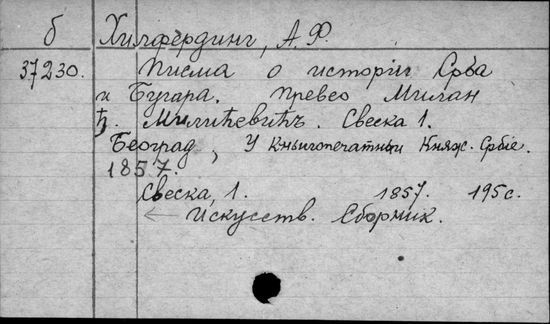 б Хилфердинг, А. Ф.
37230. Писма о историіи Срба
и Бугара. Превео Милан
Ђ. Милићевићъ. Свеска 1.
Београд, У Књигопечатньи Княж. Србіе.
1857.
Свеска, 1. 1857. 195 с.
← Искусств. Сборник.